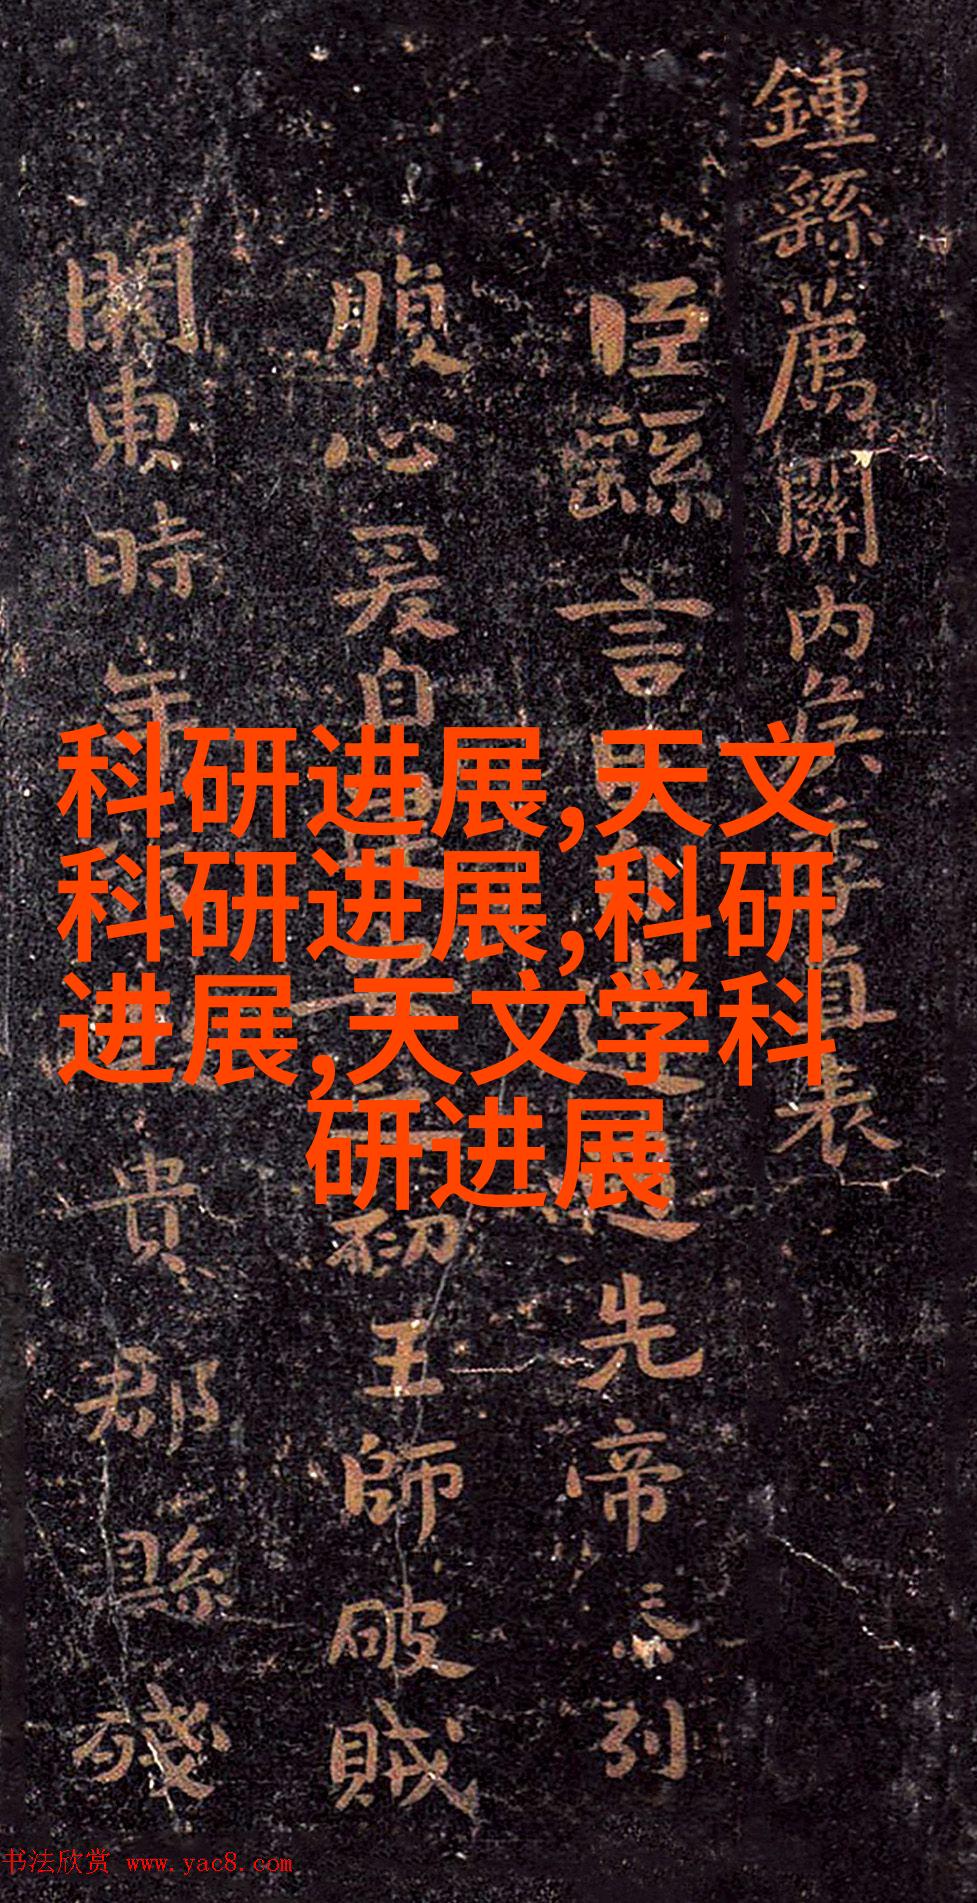 鍾繇薦關内矦季直表
臣繇言遭先帝忝列
腹心爰自初王師破賊
關東時年貴郡縣殘
科研进展,天文
科研进展,科研
进展,天文学科
研进展
书法欣赏 www.yac8.com